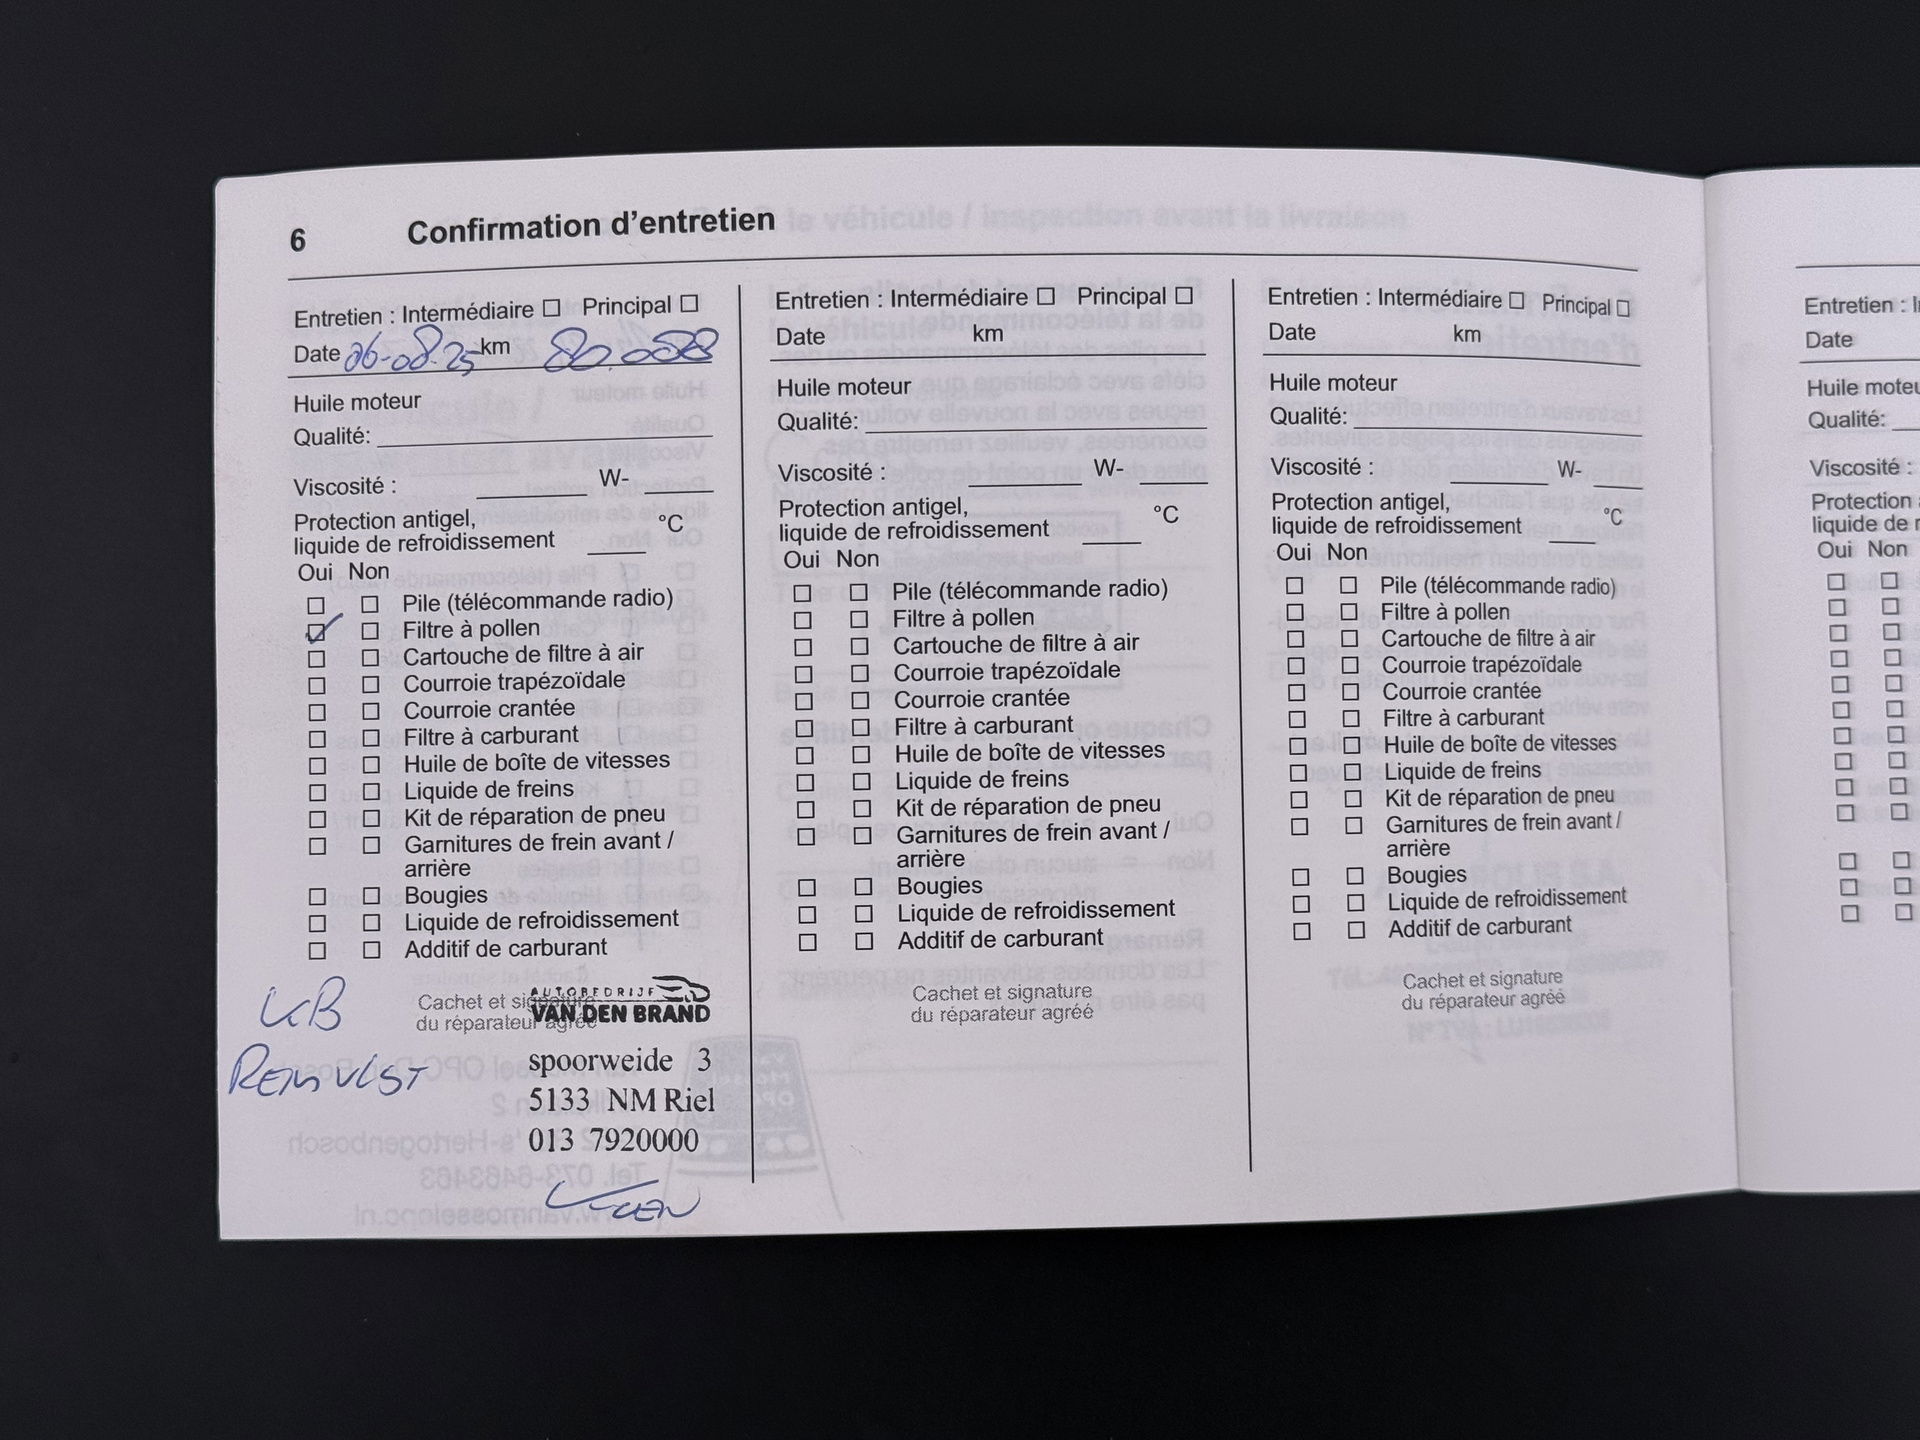 6 Confirmation d’entretien
Entretien : Intermédiaire ☐ Principal ☐
Date 06-08-25 km 80.058
Huile moteur
Qualité:
Viscosité : W-
Protection antigel,
liquide de refroidissement °C
Oui Non
Pile (télécommande radio)
Filtre à pollen
Cartouche de filtre à air
Courroie trapézoïdale
Courroie crantée
Filtre à carburant
Huile de boîte de vitesses
Liquide de freins
Kit de réparation de pneu
Garnitures de frein avant /
arrière
Bougies
Liquide de refroidissement
Additif de carburant
Cachet et signature
du réparateur agréé
AUTOBEDRIJF
VAN DEN BRAND
REMVLST
spoorweide 3
5133 NM Riel
013 7920000
Entretien : Intermédiaire ☐ Principal ☐
Date km
Huile moteur
Qualité:
Viscosité : W-
Protection antigel,
liquide de refroidissement °C
Oui Non
Pile (télécommande radio)
Filtre à pollen
Cartouche de filtre à air
Courroie trapézoïdale
Courroie crantée
Filtre à carburant
Huile de boîte de vitesses
Liquide de freins
Kit de réparation de pneu
Garnitures de frein avant /
arrière
Bougies
Liquide de refroidissement
Additif de carburant
Cachet et signature
du réparateur agréé
Entretien : Intermédiaire ☐ Principal ☐
Date km
Huile moteur
Qualité:
Viscosité : W-
Protection antigel,
liquide de refroidissement °C
Oui Non
Pile (télécommande radio)
Filtre à pollen
Cartouche de filtre à air
Courroie trapézoïdale
Courroie crantée
Filtre à carburant
Huile de boîte de vitesses
Liquide de freins
Kit de réparation de pneu
Garnitures de frein avant /
arrière
Bougies
Liquide de refroidissement
Additif de carburant
Cachet et signature
du réparateur agréé
Entretien :
Date
Huile moteu
Qualité:
Viscosité :
Protection
liquide de r
Oui Non